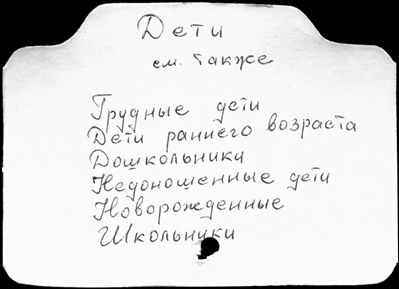 Дети
см. также
Грудные дети
Дети раннего возраста
Дошкольники
Недоношенные дети
Новорожденные
Школьники